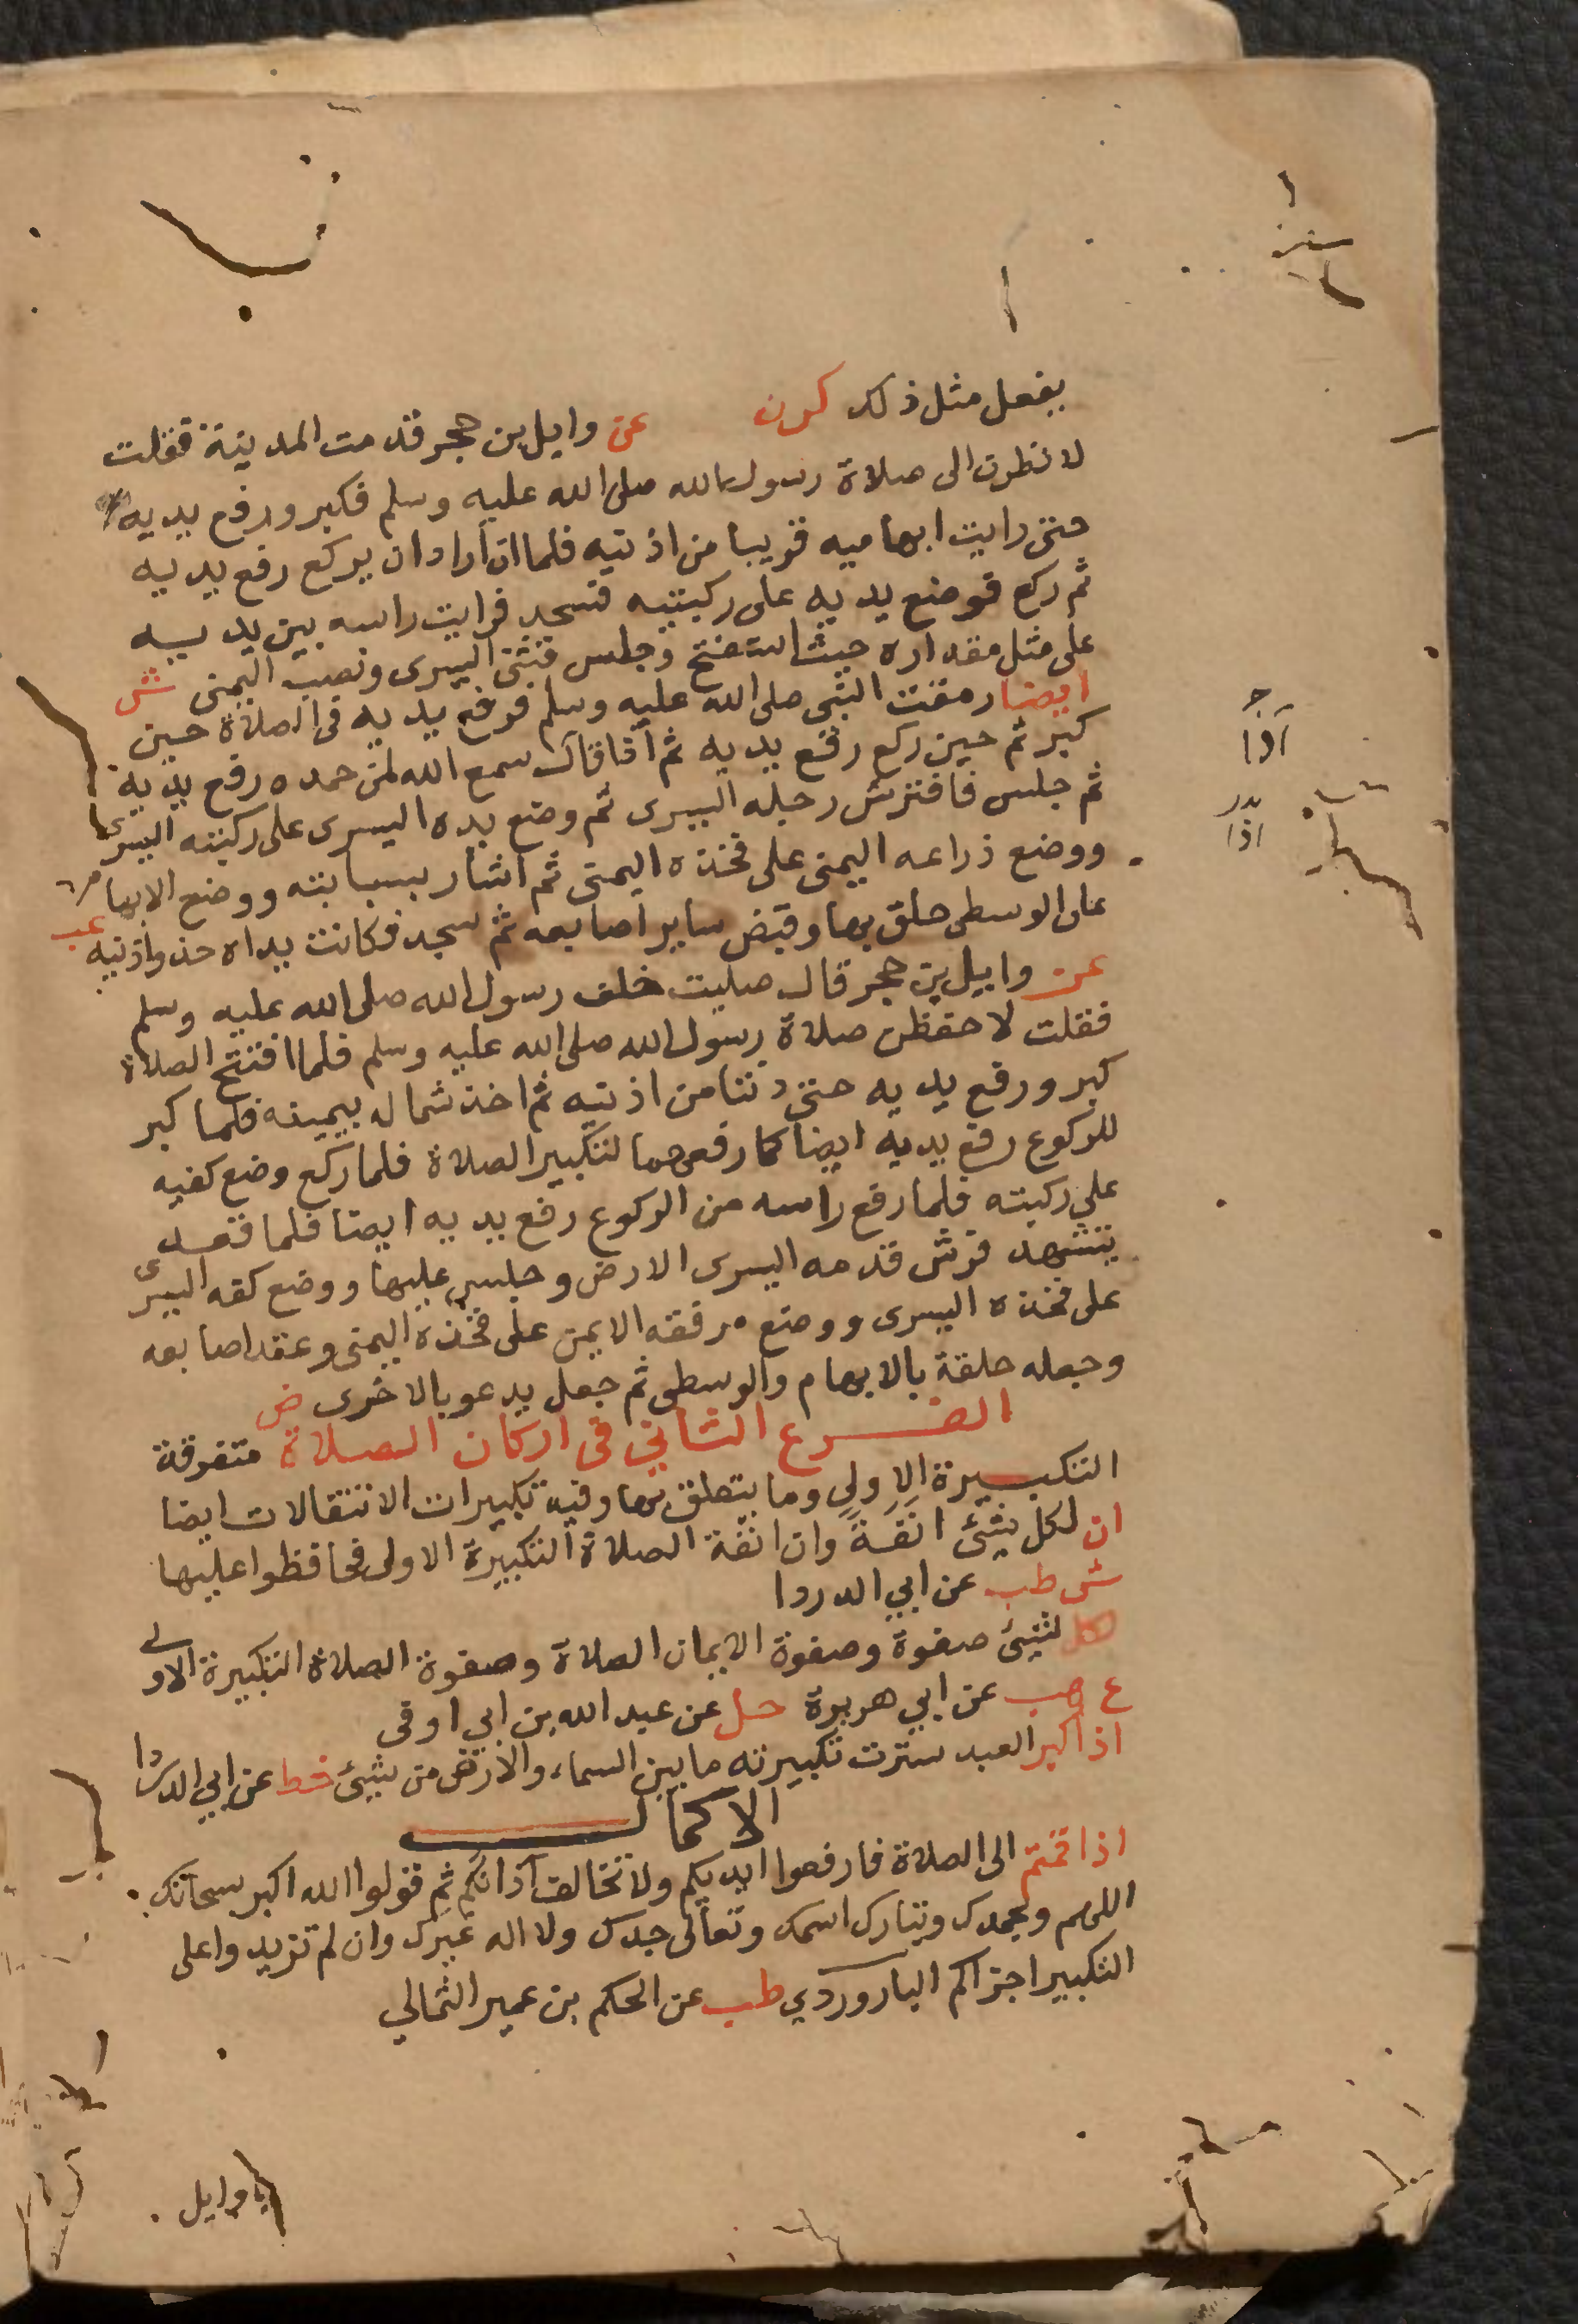 يفعل مثل ذلك كرن عن وايل بن حجر قدمت المدينة فقلت
لانظرن الى صلاة رسول الله صلى الله عليه وسلم فكبر ورفع يديه
حتى رايت ابهاميه قريبا من اذنيه فلما ان اراد ان يركع رفع يديه
ثم ركع فوضع يديه على ركبتيه فسجد فرايت راسه بين يديه
على مثل مقداره حيث استفتح وجلس فثنى اليسرى ونصب اليمنى ش
ايضا رمقت النبي صلى الله عليه وسلم فرفع يديه في الصلاة حين
كبر ثم حين ركع رفع يديه ثم اذا قال سمع الله لمن حمده رفع يديه
ثم جلس فافترش رجله اليسرى ثم وضع يده اليسرى على ركبته اليسرى
ووضع ذراعه اليمنى على فخذه اليمنى ثم اشار بسبابته ووضع الابهام
على الوسطى حلق بها وقبض ساير اصابعه ثم سجد فكانت يداه حذو اذنيه عب
عن وايل بن حجر قال صليت خلف رسول الله صلى الله عليه وسلم
فقلت لاحفظن صلاة رسول الله صلى الله عليه وسلم فلما افتتح الصلاة
كبر ورفع يديه حتى دنتا من اذنيه ثم اخذ شماله بيمينه فلما كبر
للركوع رفع يديه ايضا كما رفعهما لتكبير الصلاة فلما ركع وضع كفيه
على ركبته فلما رفع راسه من الركوع رفع يديه ايضا فلما قعد
يتشهد فرش قدمه اليسرى الارض وجلس عليها ووضع كفه اليسرى
على فخذه اليسرى ووضع مرفقه الايمن على فخذه اليمنى وعقد اصابعه
وجعله حلقة بالابهام والوسطى ثم جعل يدعو بالاخرى ض
الفرع الثاني في اركان الصلاة متفرقة
التكبيرة الاولى وما يتعلق بها وفيه تكبيرات الانتقالات ايضا
ان لكل شيئ انفة وان انفة الصلاة التكبيرة الاولى فحافظوا عليها
ش طب عن ابي الدردا
لكل شيئ صفوة وصفوة الايمان الصلاة وصفوة الصلاة التكبيرة الاولى
ع هب عن ابي هريرة حل عن عبد الله بن ابي اوفى
اذا كبر العبد سترت تكبيرته ما بين السماء والارض من شيئ خط عن ابي الدردا
الاكمال
اذا قمتم الى الصلاة فارفعوا ايديكم ولا تخالف آذانكم ثم قولوا الله اكبر سبحانك
اللهم وبحمدك وتبارك اسمك وتعالى جدك ولا اله غيرك وان لم تزيدوا على
التكبير اجزاكم الباوردي طب عن الحكم بن عمير الثمالي
يا وايل